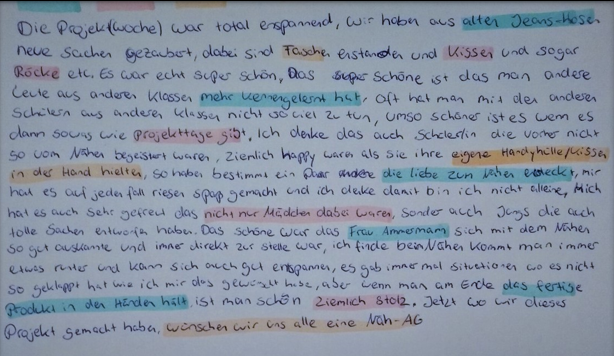 Die Projekt(woche) war total enspannend, wir haben aus alten Jeans-Hosen
neue Sachen gezaubert, dabei sind Tasche erstanden und Kissen und sogar
Röcke etc. Es war echt super schön, Das super schöne ist das man andere
Leute aus anderen Klassen mehr kennengelernt hat, oft hat man mit den anderen
Schülern aus anderen Klassen nicht so viel zu tun, umso schöner ist es wenn es
dann sowas wie Projekttage gibt, Ich denke das auch Schülerlin die vorher nicht
so vom Nähen begeistert waren, ziemlich happy waren als sie ihre eigene Handyhülle/Kissen
in der Hand hielten, so haben bestimmt ein Paar andere die liebe zum nähen entdeckt, mir
hat es auf jeden fall riesen spaß gemacht und ich denke damit bin ich nicht alleine, Mich
hat es auch sehr gefreut das nicht nur Mädchen dabei waren, sonder auch Jungs die auch
tolle Sachen entworfen haben. Das schöne war das Frau Ammermann sich mit dem Nähen
so gut auskannte und immer direkt zur stelle war, ich finde beim Nähen kommt man immer
etwas runter und kann sich auch gut entspannen, es gab immer mal situationen wo es nicht
so geklappt hat wie ich mir das gewünscht habe, aber wenn man am Ende das fertige
Produkt in den Händen hält, ist man schön ziemlich stolz. Jetzt wo wir dieses
Projekt gemacht haben, wünschen wir uns alle eine Näh-AG